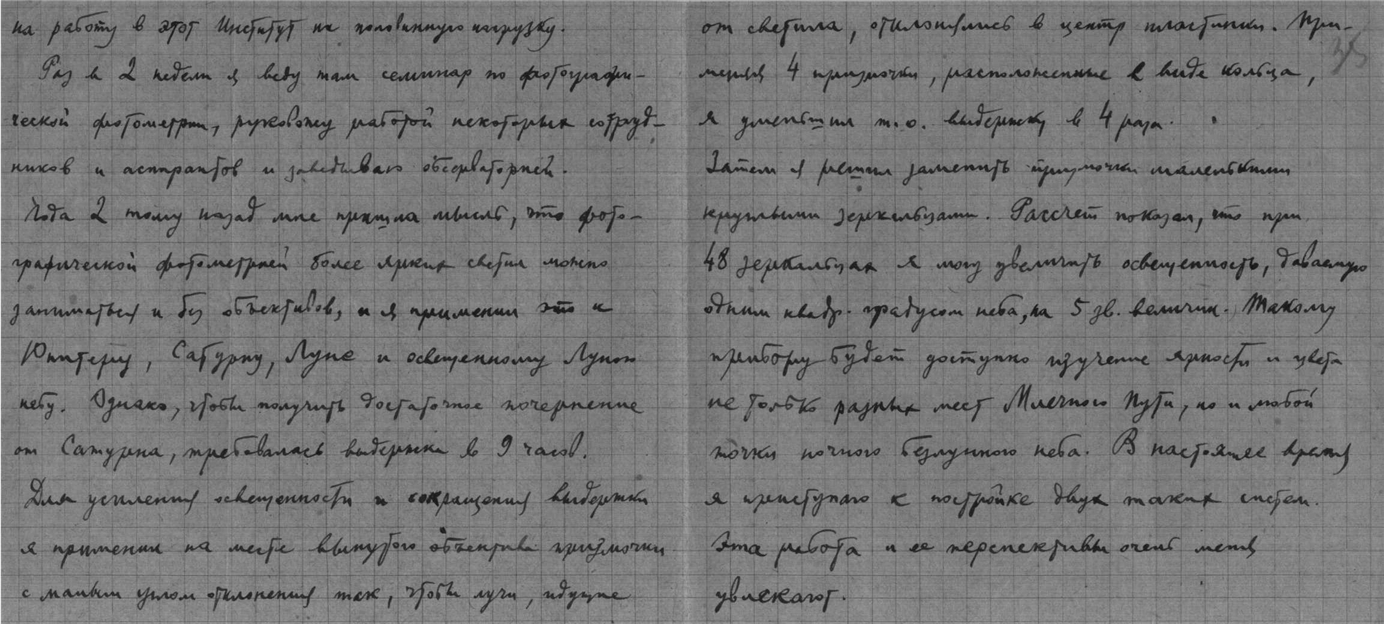 на работу в этот Институт на половинную нагрузку.
Раз в 2 недели я веду там семинар по фотографи-
ческой фотометрии, руковожу работой некоторых сотруд-
ников и аспирантов и заведываю обсерваторией.
Года 2 тому назад мне пришла мысль, что фото-
графической фотометрией более ярких светил можно
заниматься и без объективов, и я применил это к
Юпитеру, Сатурну, Луне и освещенному Луною
небу. Однако, чтобы получить достаточное почернение
от Сатурна, требовалась выдержка в 9 часов.
Для усиления освещенности и сокращения выдержки
я применил на месте вынутого объектива призмочки
с малым углом отклонения так, чтобы лучи, идущие
от светила, отклонялись в центр пластинки. При-
меняя 4 призмочки, расположенные в виде кольца,
я уменьшил т.о. выдержку в 4 раза.
Затем я решил заменить призмочки маленькими
круглыми зеркальцами. Рассчет показал, что при
48 зеркальцах я могу увеличить освещенность, даваемую
одним квадр. градусом неба, на 5 зв. величин. Такому
прибору будет доступно изучение яркости и цвета
не только разных мест Млечного Пути, но и любой
точки ночного безлунного неба. В настоящее время
я приступаю к постройке двух таких систем.
Эта работа и ее перспективы очень меня
увлекают.